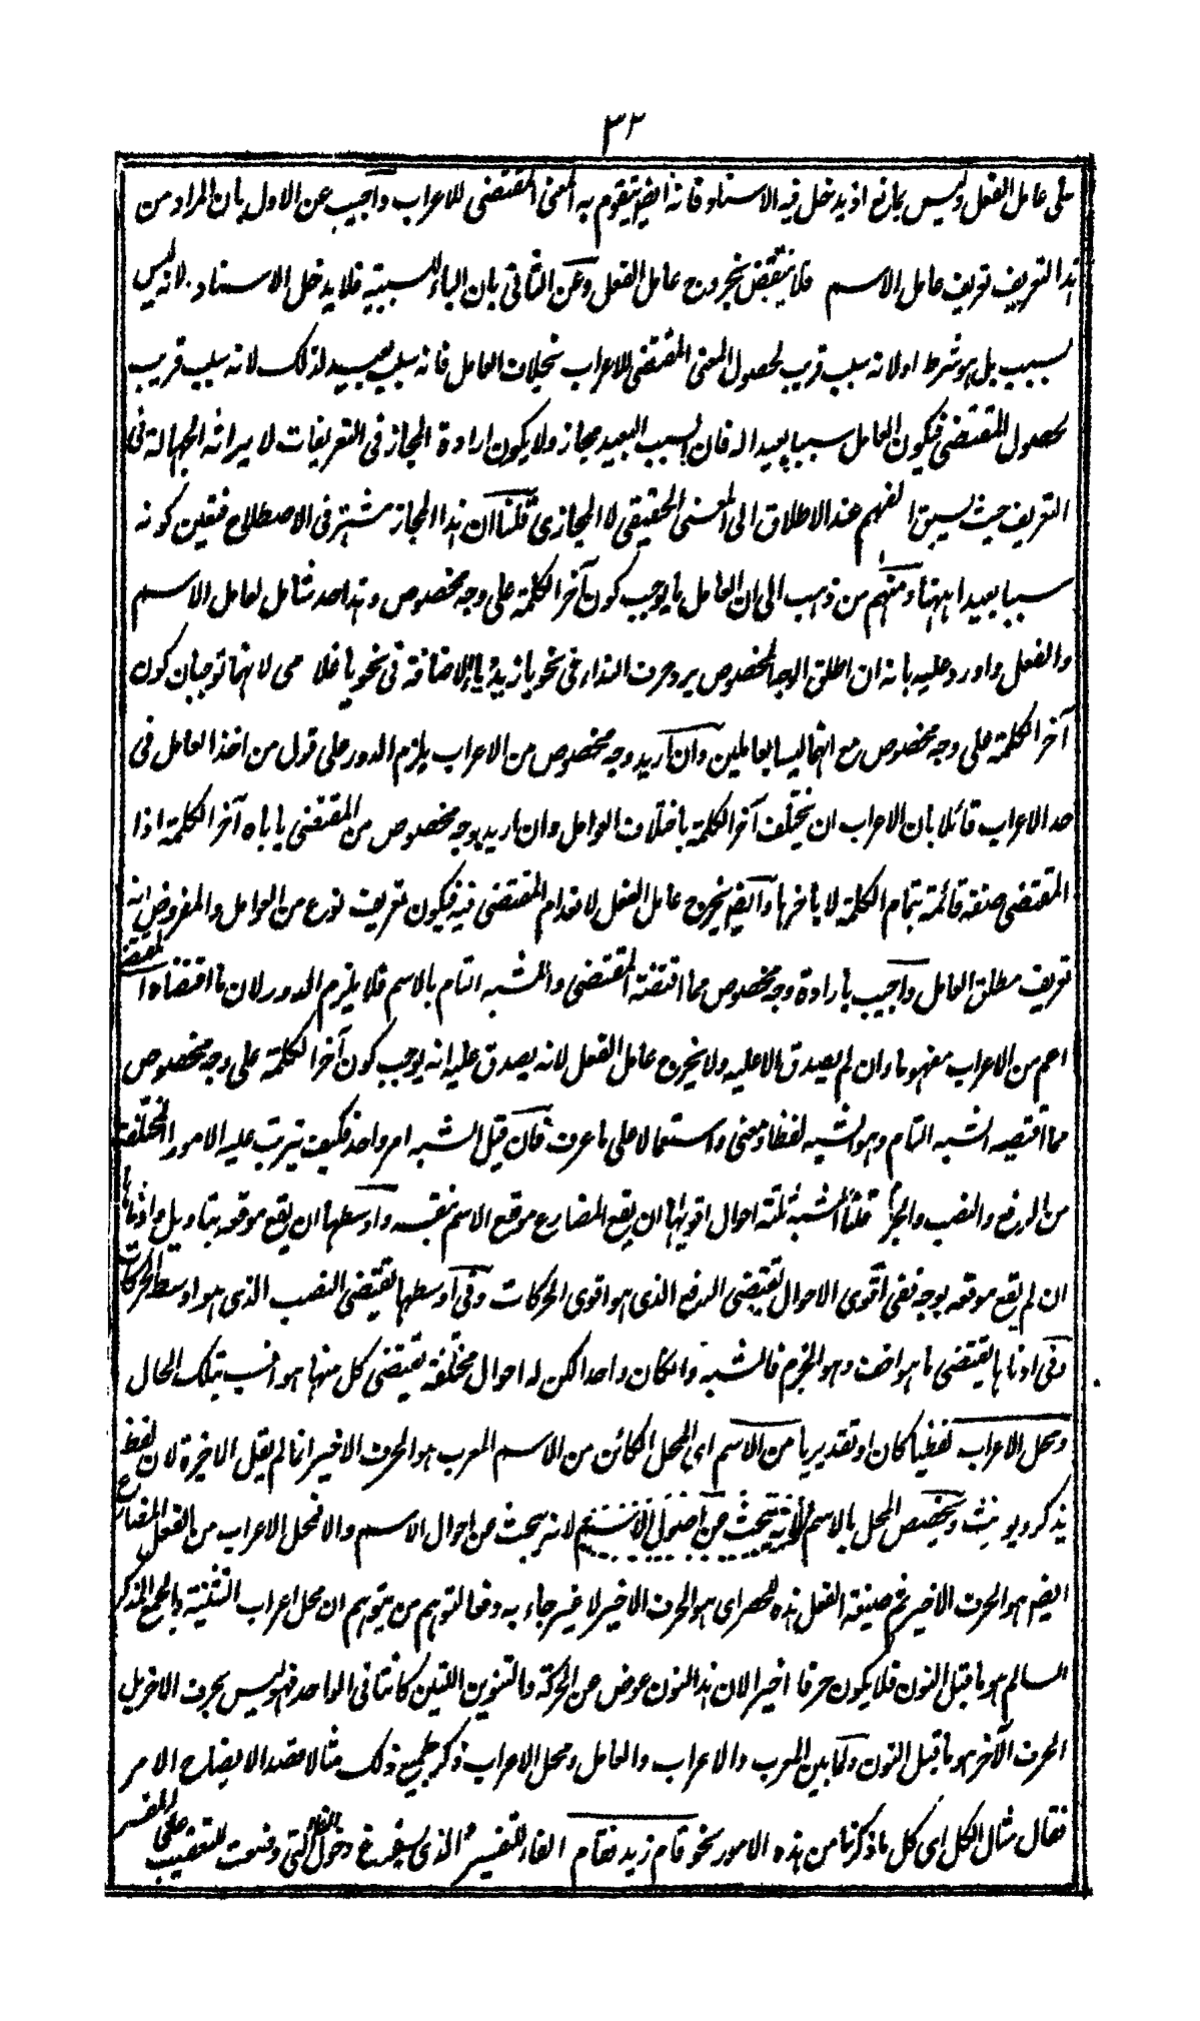 ٣٢
على عامل الفعل وليس بمانع اذ يدخل فيه الاسناد فانه ايضا يتقوم به المعنى المقتضى للاعراب واجيب عن الاول بان المراد من
هذا التعريف تعريف عامل الاسم فلا ينتقض بخروج عامل الفعل وعن الثانى بان الباء للسببية فلا يدخل الاسناد لانه ليس
بسبب بل هو شرط او لانه سبب قريب لحصول المعنى المقتضى للاعراب بخلاف العامل فانه سبب بعيد لذلك لانه سبب قريب
لحصول المقتضى فيكون العامل سببا بعيدا له فان السبب البعيد مجاز ولا يكون ارادة المجاز فى التعريفات لا يراثه الجهالة فى
التعريف حيث يسبق الفهم عند الاطلاق الى المعنى الحقيقى لا المجازى قلنا ان هذا المجاز مشتهر فى الاصطلاح فتعين كونه
سببا بعيدا ههنا ومنهم من ذهب الى ان العامل ما يوجب كون آخر الكلمة على وجه مخصوص وهذا حد شامل لعامل الاسم
والفعل واورد عليه بانه ان اطلق الوجه المخصوص يرد حرف النداء فى نحو يا زيد وياء الاضافة فى نحو يا غلامى لانهما توجبان كون
آخر الكلمة على وجه مخصوص مع انهما ليسا بعاملين وان اريد وجه مخصوص من الاعراب يلزم الدور على قول من اخذ العامل فى
حد الاعراب قائلا بان الاعراب ان يختلف آخر الكلمة باختلاف العوامل وان اريد بوجه مخصوص من المقتضى يأباه آخر الكلمة اذا
المقتضى صفة قائمة بتمام الكلمة لا بآخرها وايضا يخرج عامل الفعل لانعدام المقتضى فيه فيكون تعريف نوع من العوامل والمفروض انه
تعريف مطلق العامل واجيب بارادة وجه مخصوص مما اقتضته المقتضى والشبه التام بالاسم فلا يلزم الدور لان ما اقتضاه المقتضى
اعم من الاعراب مفهوما وان لم يصدق الا عليه ولا يخرج عامل الفعل لانه يصدق عليه انه يوجب كون آخر الكلمة على وجه مخصوص
مما اقتضيه الشبه التام وهو الشبه لفظا ومعنى واستعمالا على ما عرف فان قيل الشبه امر واحد فكيف يترتب عليه الامور المختلفة
من الرفع والنصب والجزم قلنا للشبه ثلثة احوال اقويها ان يقع المضارع موقع الاسم بنفسه واوسطها ان يقع موقعه بتاويل وادناها
ان لم يقع موقعه بوجه ففى اقوى الاحوال يقتضى الرفع الذى هو اقوى الحركات وفى اوسطها يقتضى النصب الذى هو اوسط الحركات
وفى ادناها يقتضى ما هو اخف وهو الجزم فالشبه وان كان واحدا لكن له احوال مختلفة يقتضى كل منها ما هو انسب بتلك الحال
ومحل الاعراب لفظيا كان او تقديريا من الاسم اى المحل الكائن من الاسم المعرب هو الحرف الاخير انما لم يقل الاخيرة لان لفظ
يذكر ويونث وتخصيص المحل بالاسم لانه يبحث عن احوال الاسم والا فمحل الاعراب من الفعل المضارع
ايضا هو الحرف الاخير ثم صيغة الفعل هذه للحصر اى هو الحرف الاخير لا غير جاء به دفعا لتوهم من يتوهم ان محل اعراب التثنية والجمع المذكر
السالم هو ما قبل النون فلا يكون حرفا اخيرا لان هذا النون عوض عن الحركة والتنوين اللتين كانتا فى الواحد فهو ليس بحرف الآخر بل
الحرف الآخر هو ما قبل النون ولما بين المعرب والاعراب والعامل ومحل الاعراب ذكر لجميع ذلك مثالا قصدا لايضاح الامر
فقال مثال الكل اى كل ما ذكرنا من هذه الامور نحو قام زيد فقام الفاء للتفسير الذى يتفرع دخول الفاء التى وضعت للتعقيب على المفسر